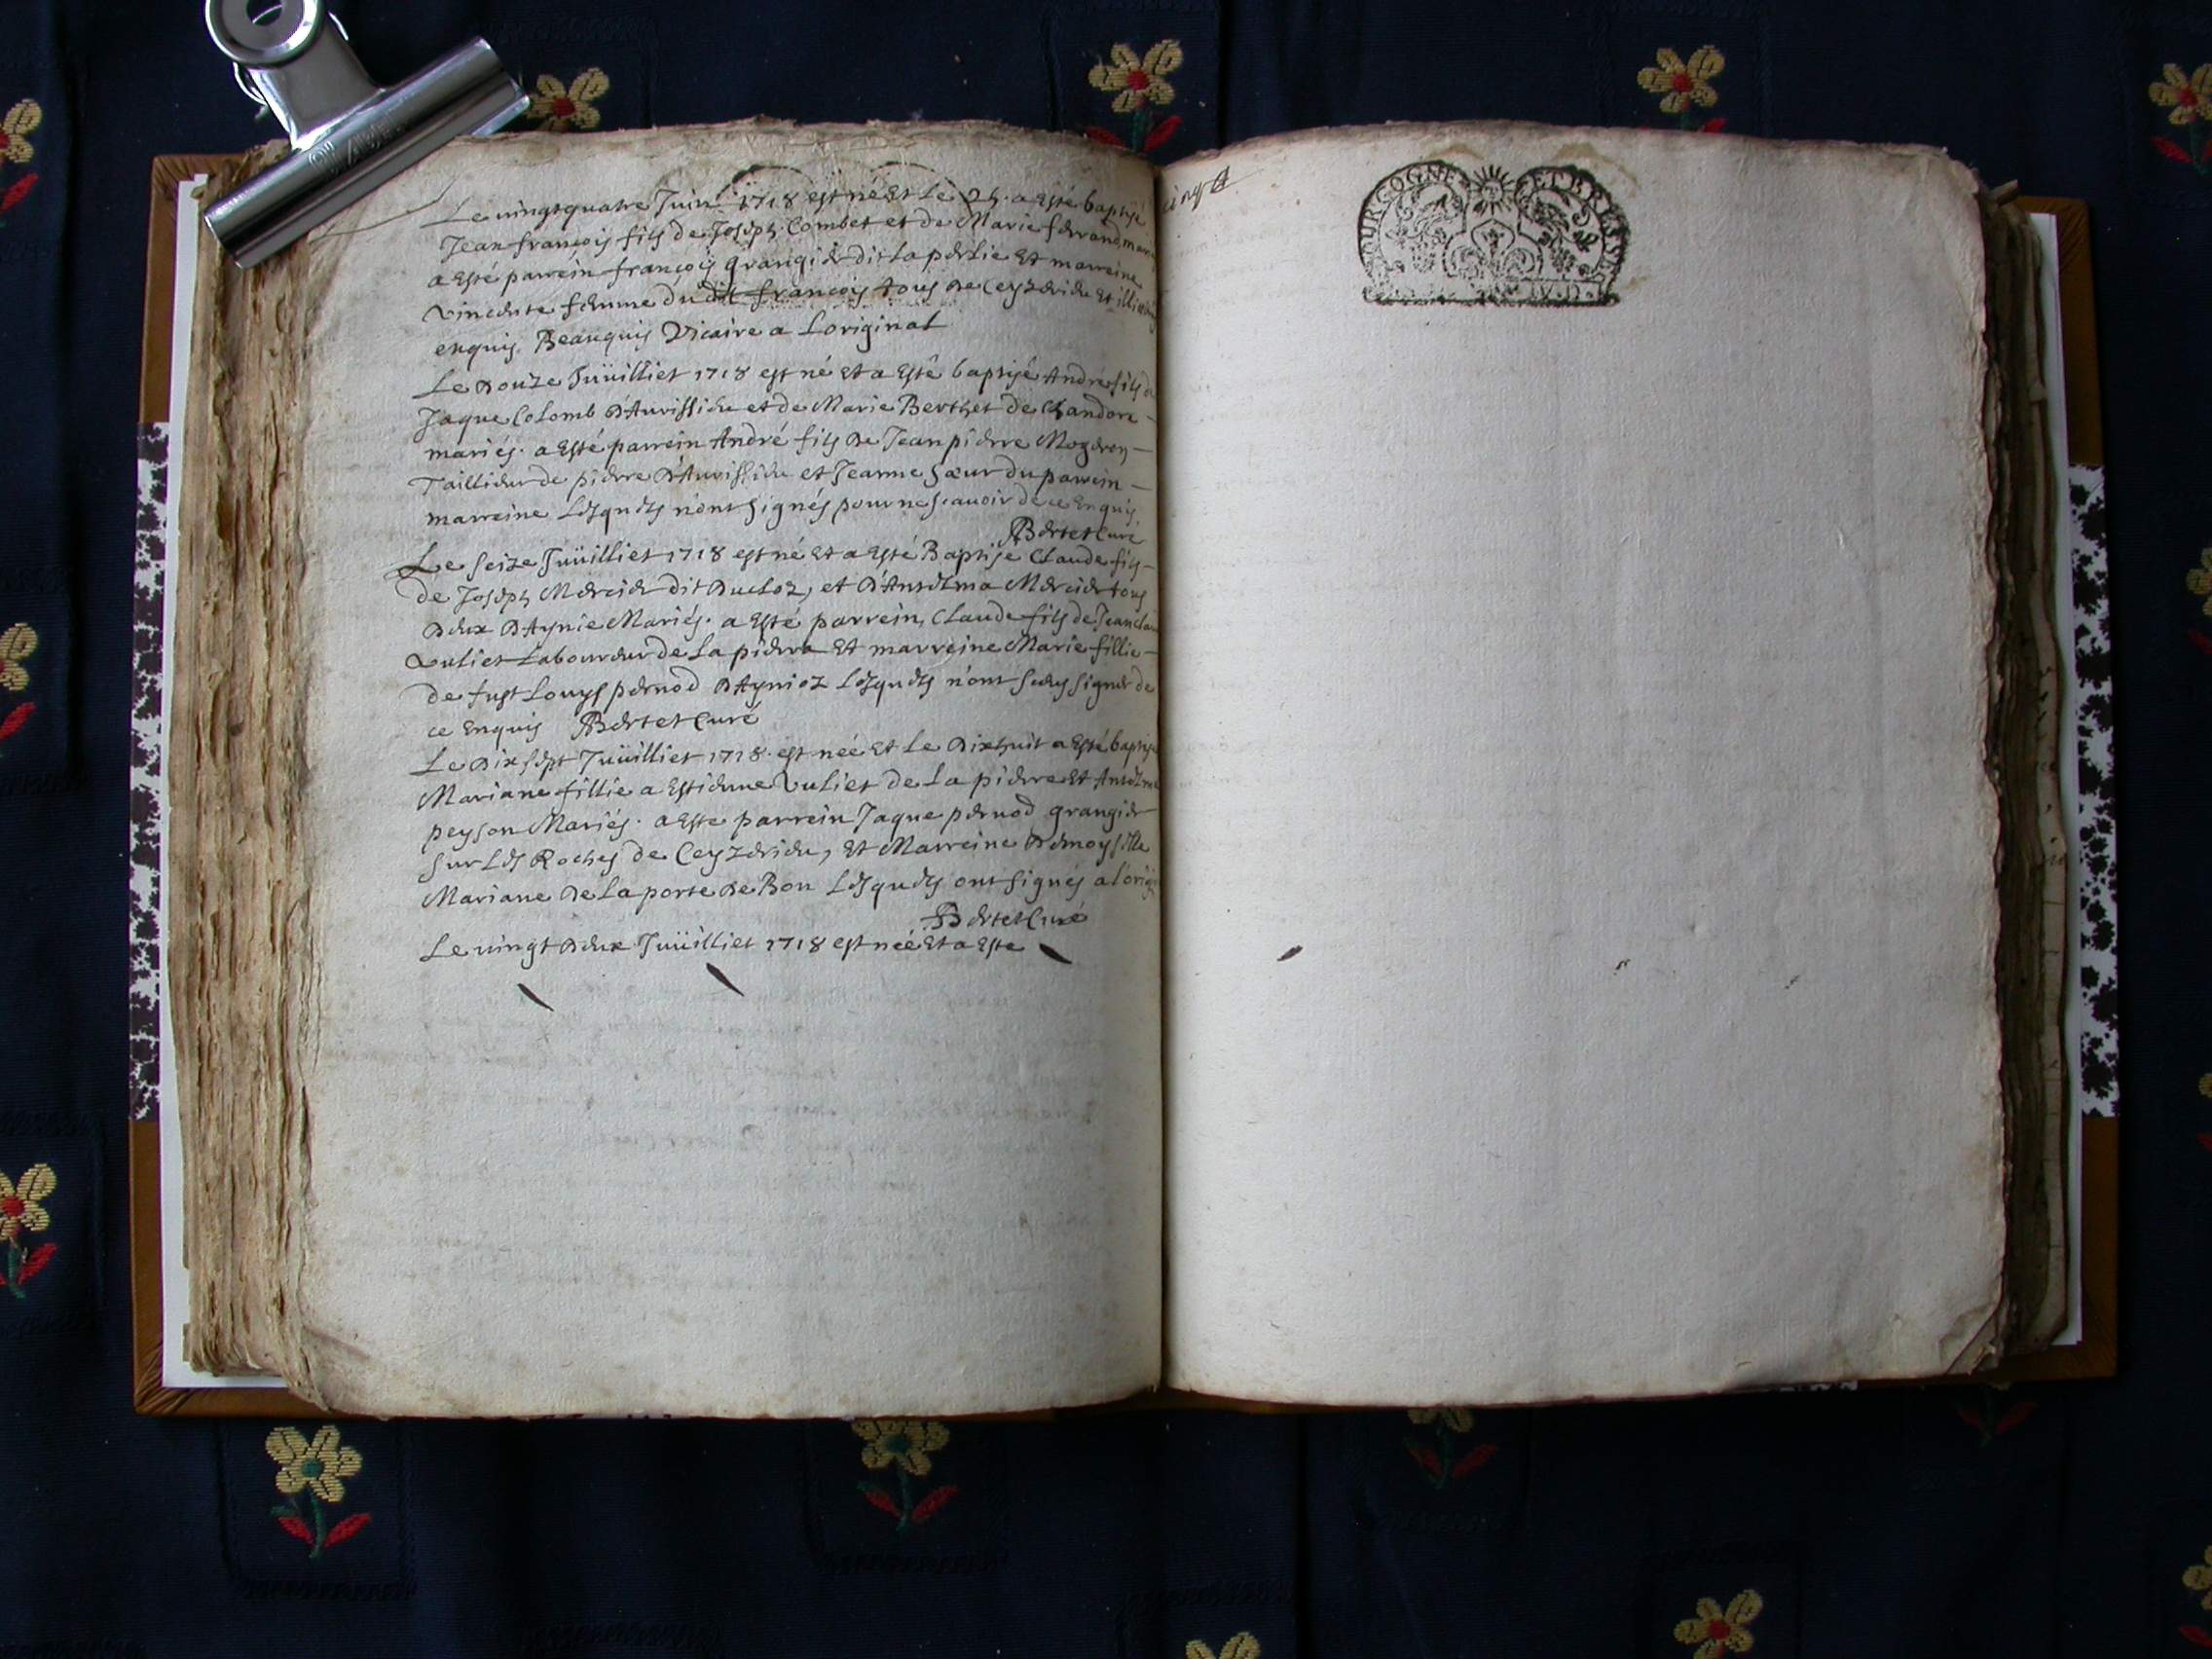 Le vingtquatre Juin 1718 est né Et Le 25. a Esté baptisé
Jean françois fils de Joseph Combet et de Marie ferrand
a Esté parrein françois grangier dit Et marreine
Vincente femme dudit françois tous De Ceyzerieu Et
enquis. Beauquis Vicaire a Loriginal
Le Douze Juüilliet 1718 est né Et a Esté baptisé André fils
Jaque Colomb D'Avrissieu et de Marie Berthet de Chandore
mariés. a Esté parrein André fils De Jean pierre
Taillieur de pierre D'Avrissieu et Jeanne Sœur du parrein
marreine Lesquels n'ont Signés pour ne Scavoir de ce Enquis
Bertet Curé
Le Seize Juüilliet 1718 est né Et a Esté Baptisé Claude fils
de Joseph Mercier dit Ducloz, et D'Antelma Mercier tous
Deux D'Aynie Mariés. a Esté parrein, Claude fils de Jean
Vuliet Laboureur de La pierre Et marreine Marie fillie
de fust Louys pernod D'Aynioz Lesquels n'ont Sceus signer de
ce Enquis Bertet Curé
Le Dix sept Juüilliet 1718. est née Et Le Dixhuit a Esté
Mariane fillie a Estienne Vuliet de La pierre Et
peyson Mariés. a Este parrein Jaque pernod grangier
Sur Les Roches de Ceyzerieu, Et Marreine Demoyselle
Mariane De La porte De Bon Lesquels ont Signés a
Bertet Curé
Le vingt Deux Juüilliet 1718 est née Et a Este
BOURGOGNE ET BRESSE